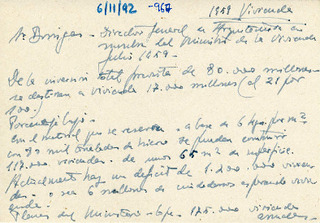 6/11/92 -967
1959 Vivienda
Director General de Arquitectura en
nombre del Ministro de la Vivienda
Julio 1959-
De la inversión total prevista de 80.000 millones
se destinan a vivienda 17.000 millones (el 21 por
100.)
Porcentaje bajo.
Con el material que se reserva - a base de 6 kgs. por m²
con 90 mil toneladas de hierro se pueden construir
117.000 viviendas - de unos 65 m² de superficie.
Actualmente hay un déficit de 1.200.000 vivien
das. o sea 6 millones de ciudadanos esperando vivi
enda.
Planes del Ministerio - 175.000 viviendas
anuales.